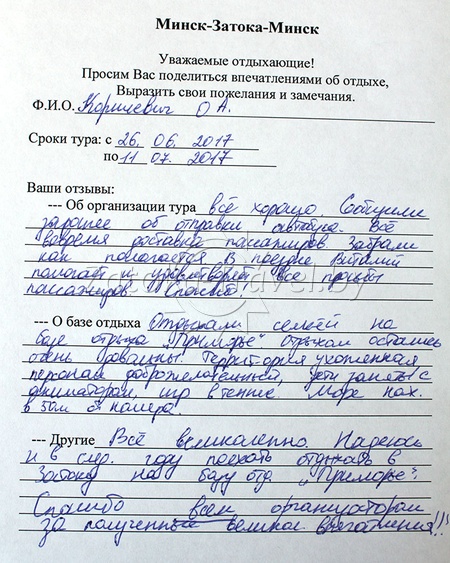 Минск-Затока-Минск
Уважаемые отдыхающие!
Просим Вас поделиться впечатлениями об отдыхе,
Выразить свои пожелания и замечания.
Ф.И.О. Корницевич О А.
Сроки тура: с 26. 06. 2017
по 11 07. 2017
Ваши отзывы:
--- Об организации тура всё хорошо. Сообщили
заранее об отправки автобуса. Всё
вовремя доставка пассажиров забрали
как полагается В поездке Виталий
помогает и удовлетворяет все просьбы
пассажиров. Спасибо,
--- О базе отдыха Отдыхали семьёй на
базе отдыха „Приморье" отдыхом остались
очень довольны. Территория ухоженная
персонал доброжелательный, дети заняты с
аниматорам, игр в теннис Море нах.
в 50м от номера.
--- Другие Всё великолепно. Надеюсь
и в след. году поехать отдыхать в
Затоку на базу отд. „Приморье".
Спасибо всем организаторам
за полученные великое впечатления!!!